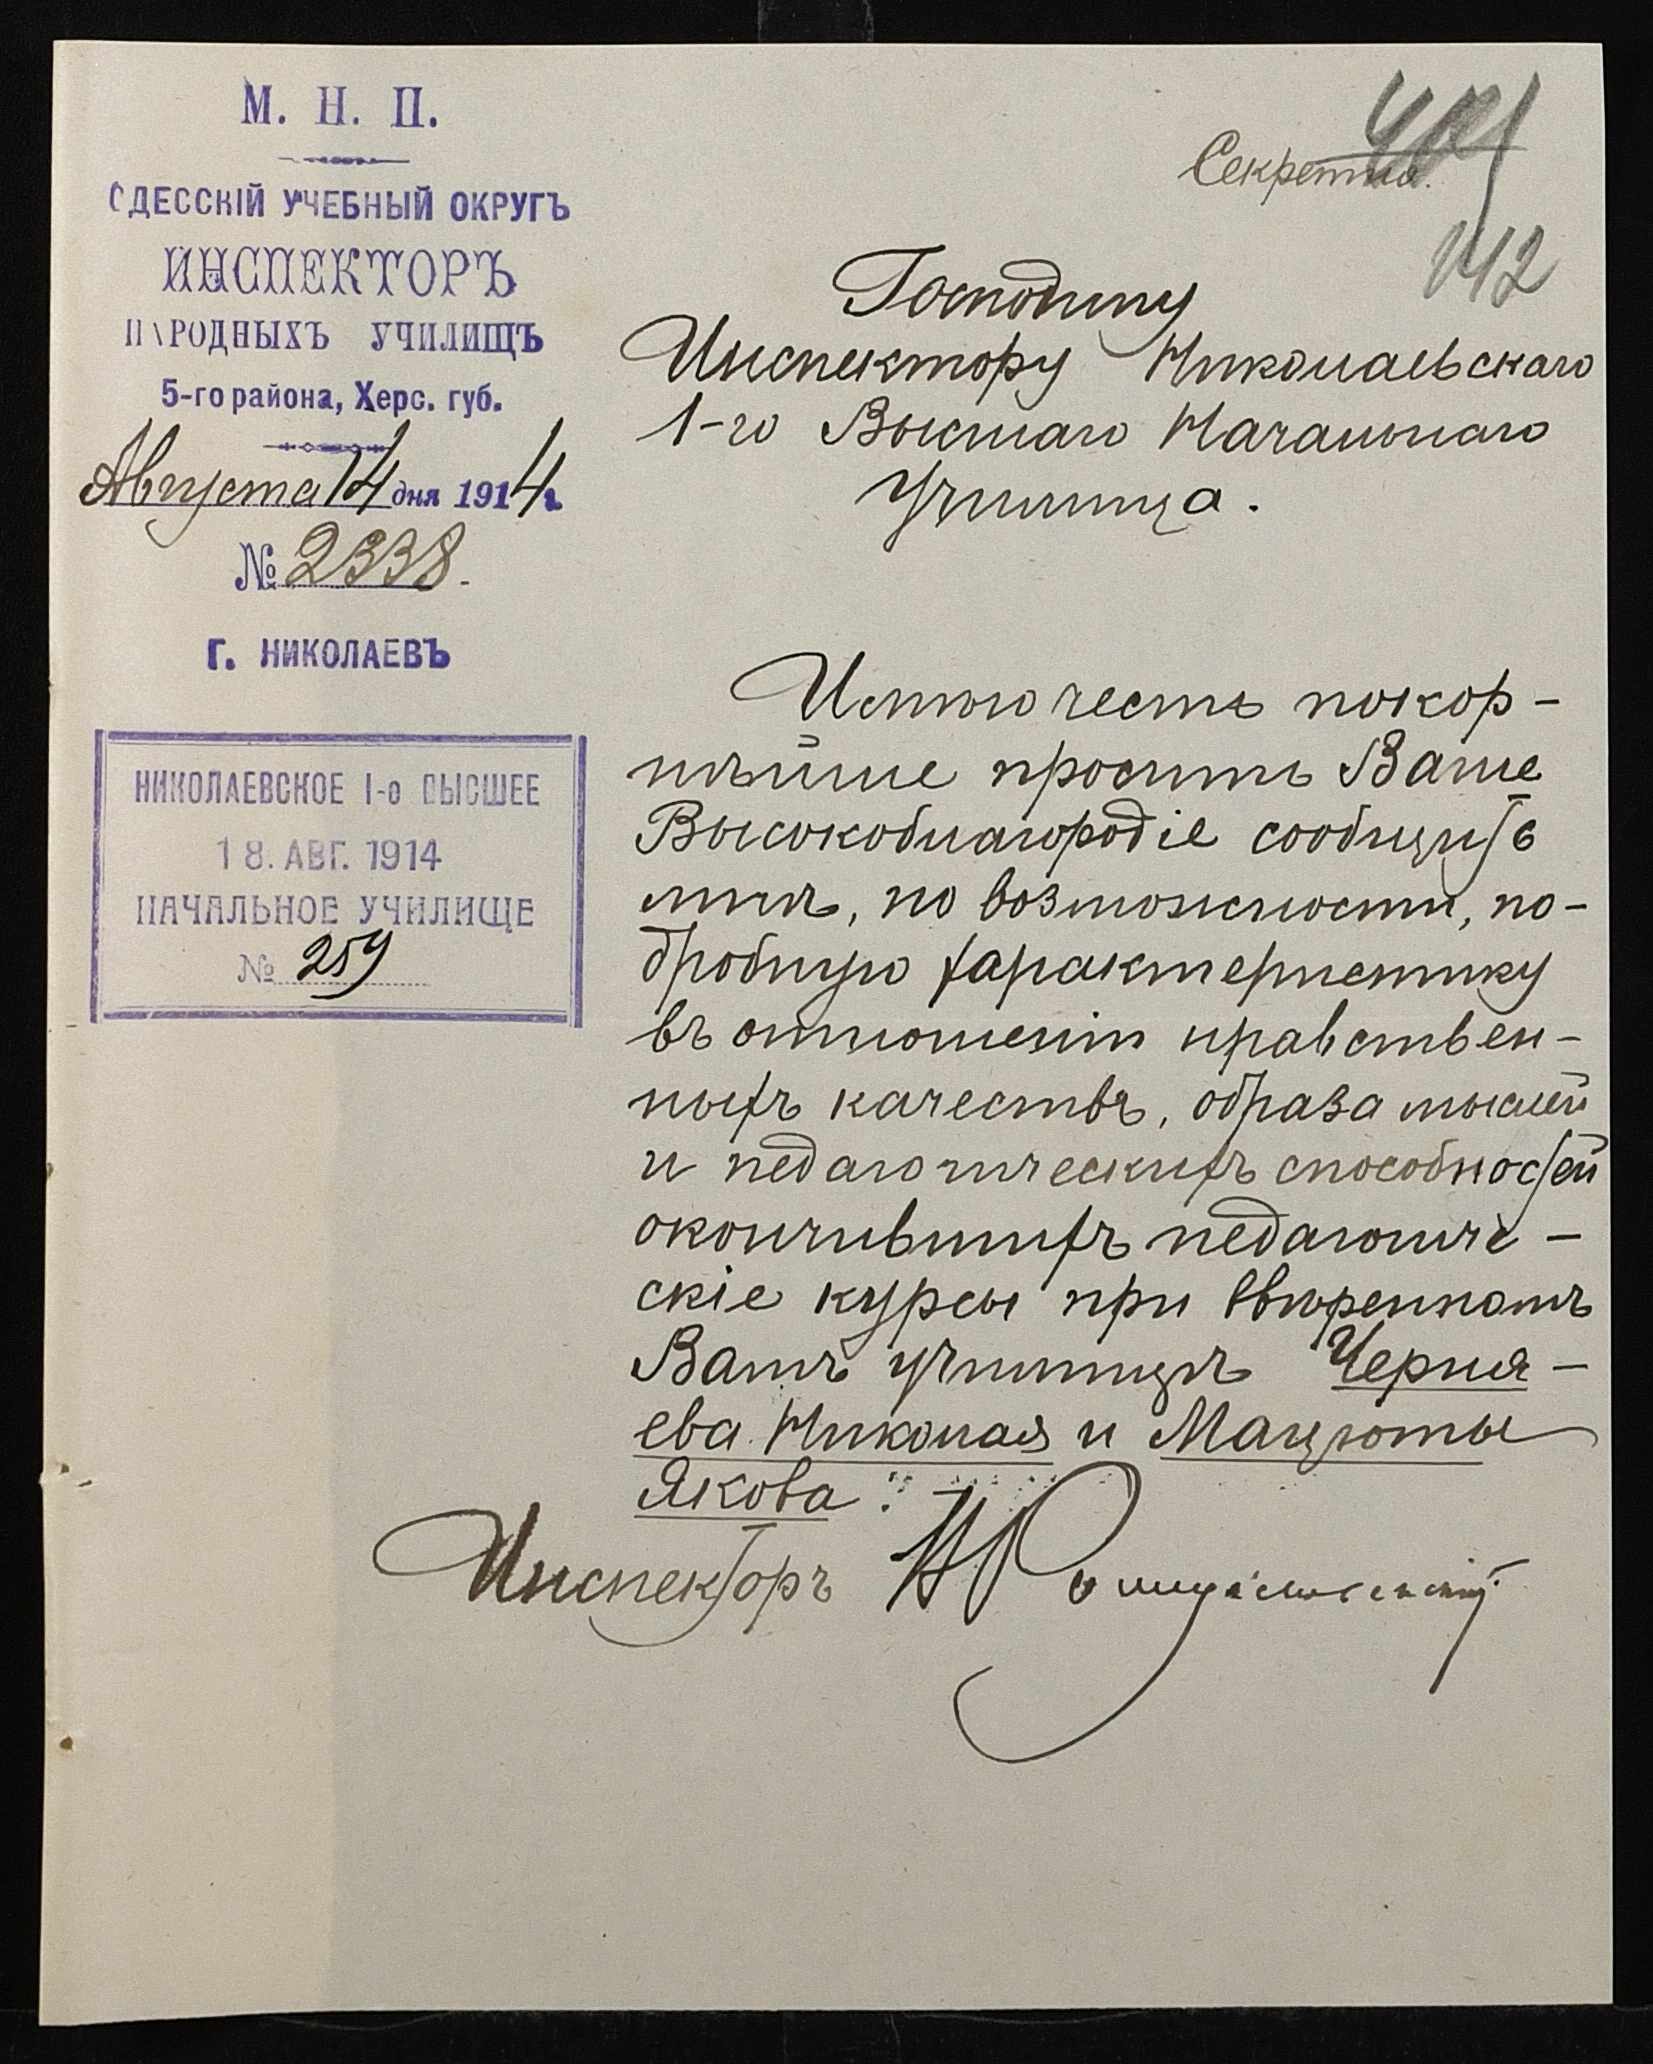 М. Н. П.
ОДЕССКІЙ УЧЕБНЫЙ ОКРУГЪ
ИНСПЕКТОРЪ
НАРОДНЫХЪ УЧИЛИЩЪ
5-го района, Херс. губ.
Августа 14 дня 1914 г.
№ 2338.
Г. НИКОЛАЕВЪ
НИКОЛАЕВСКОЕ I-е ВЫСШЕЕ
18. АВГ. 1914
НАЧАЛЬНОЕ УЧИЛИЩЕ
№ 259
Секретно.
142
Господину
Инспектору Николаевскаго
1-го Высшаго Начальнаго
Училища.
Имѣю честь покор-
нѣйше просить Ваше
Высокоблагородіе сообщить
мнѣ, по возможности, по-
дробную характеристику
въ отношеніи нравствен-
ныхъ качествъ, образа мыслей
и педагогическихъ способностей
окончившихъ педагогиче-
скіе курсы при ввѣренномъ
Вамъ училищѣ Черня-
ева Николая и Мацюты
Якова.
Инспекторъ